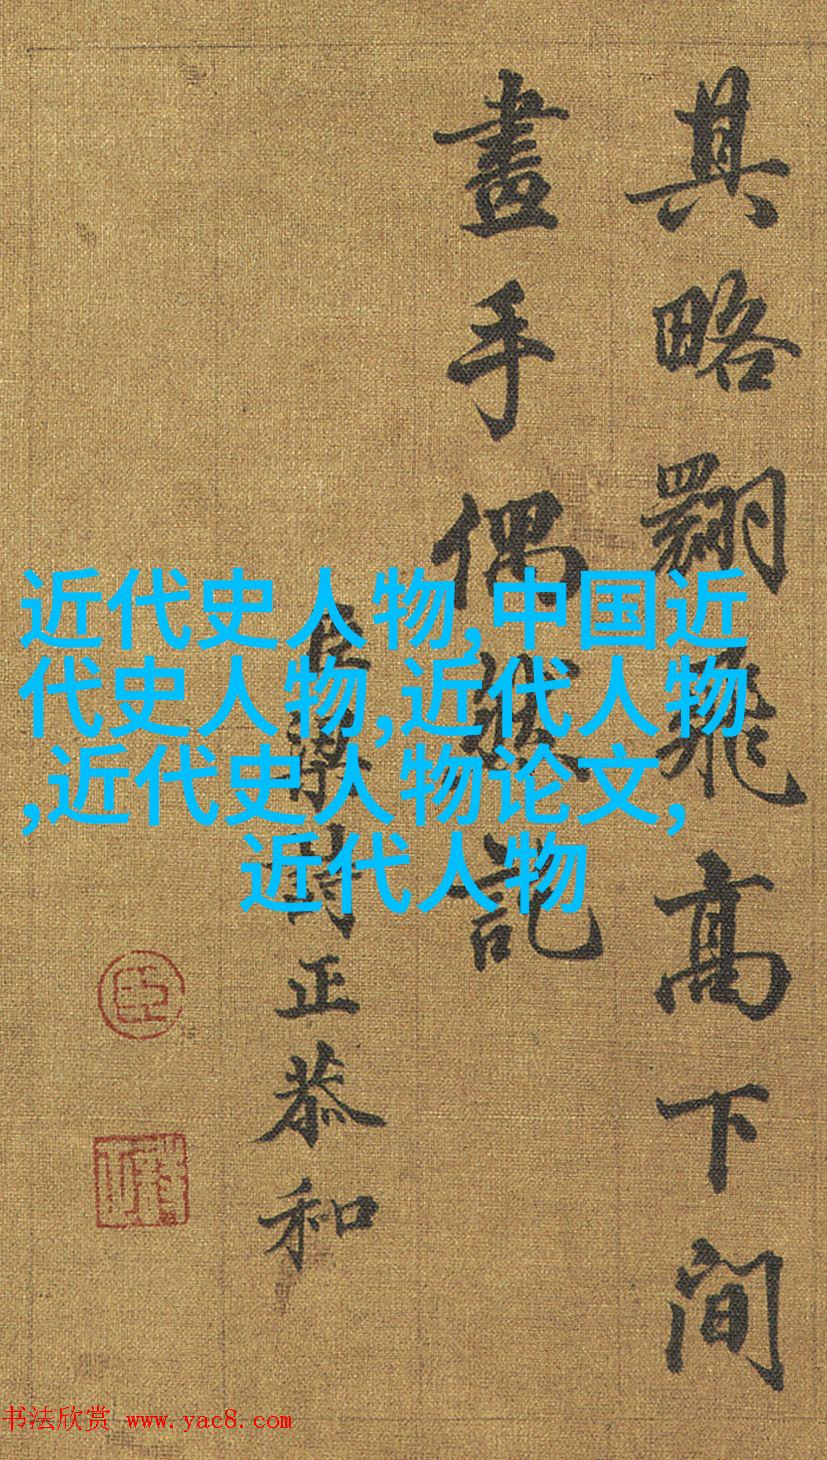 其略翾飛高下間
畫手偶然記
臣梁詩正恭和
臣
近代史人物,中国近
代史人物,近代人物
,近代史人物论文,
近代人物
书法欣赏 www.yac8.com